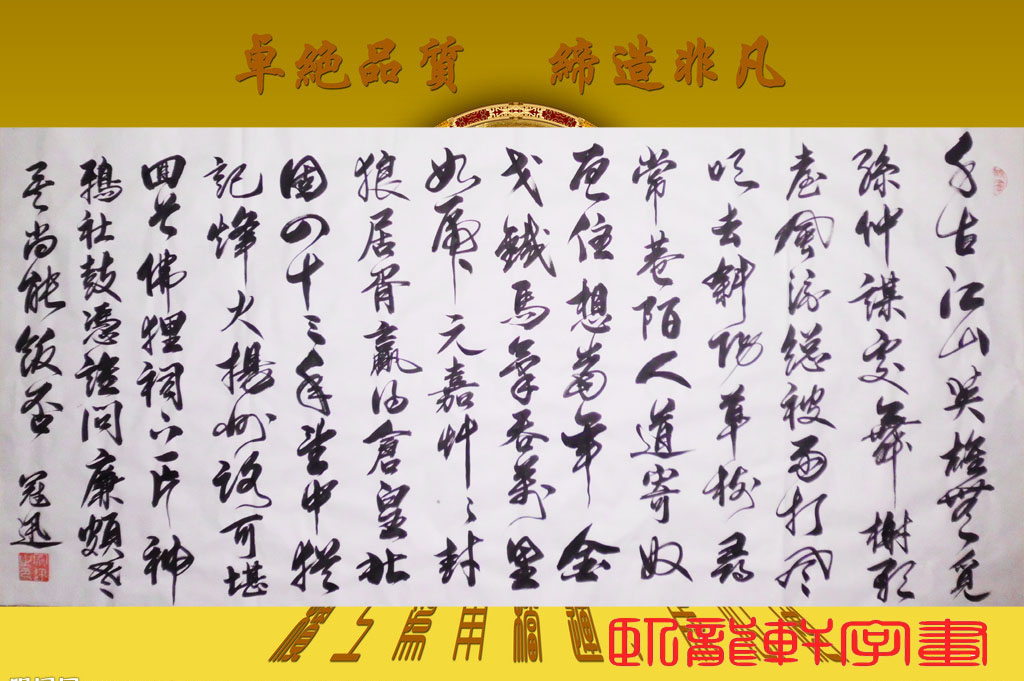 卓絶品質 締造非凡
千古江山英雄無覓
孫仲謀處舞榭歌
臺風流總被雨打風
吹去斜陽草樹尋
常巷陌人道寄奴
曾住想當年金
戈鐵馬氣吞萬里
如虎元嘉艸〻封
狼居胥贏得倉皇北
固四十三年望中猶
記烽火揚州路可堪
回首佛狸祠下一片神
鴉社鼓憑誰問廉頗老
矣尚能飯否 冠迅
虬龍軒字書